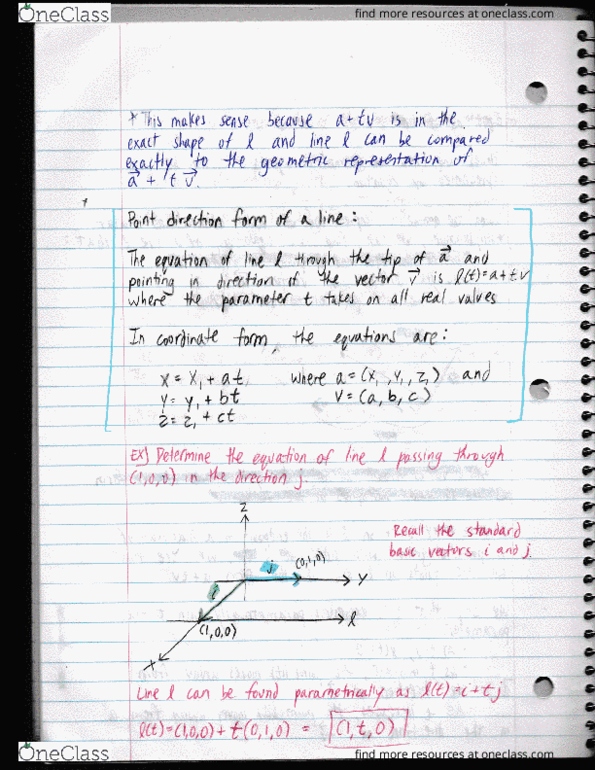 OneClass
find more resources at oneclass.com
* This makes sense because a+tv is in the
exact shape of l and line l can be compared
exactly to the geometric representation of
a⃗ + t v⃗.
Point direction form of a line:
The equation of line l through the tip of a⃗ and
pointing in direction of the vector v⃗ is l(t)=a+tv
where the parameter t takes on all real values
In coordinate form, the equations are:
x = x₁ + at, where a=(x₁, y₁, z₁) and
y = y₁ + bt v=(a, b, c)
z = z₁ + ct
EX) Determine the equation of line l passing through
(1,0,0) in the direction j.
Recall the standard
basic vectors i and j.
z
j (0,1,0)
y
i
l
(1,0,0)
x
Line l can be found parametrically as l(t)=i+tj
l(t)=(1,0,0)+t(0,1,0) = (1,t,0)
OneClass
find more resources at oneclass.com